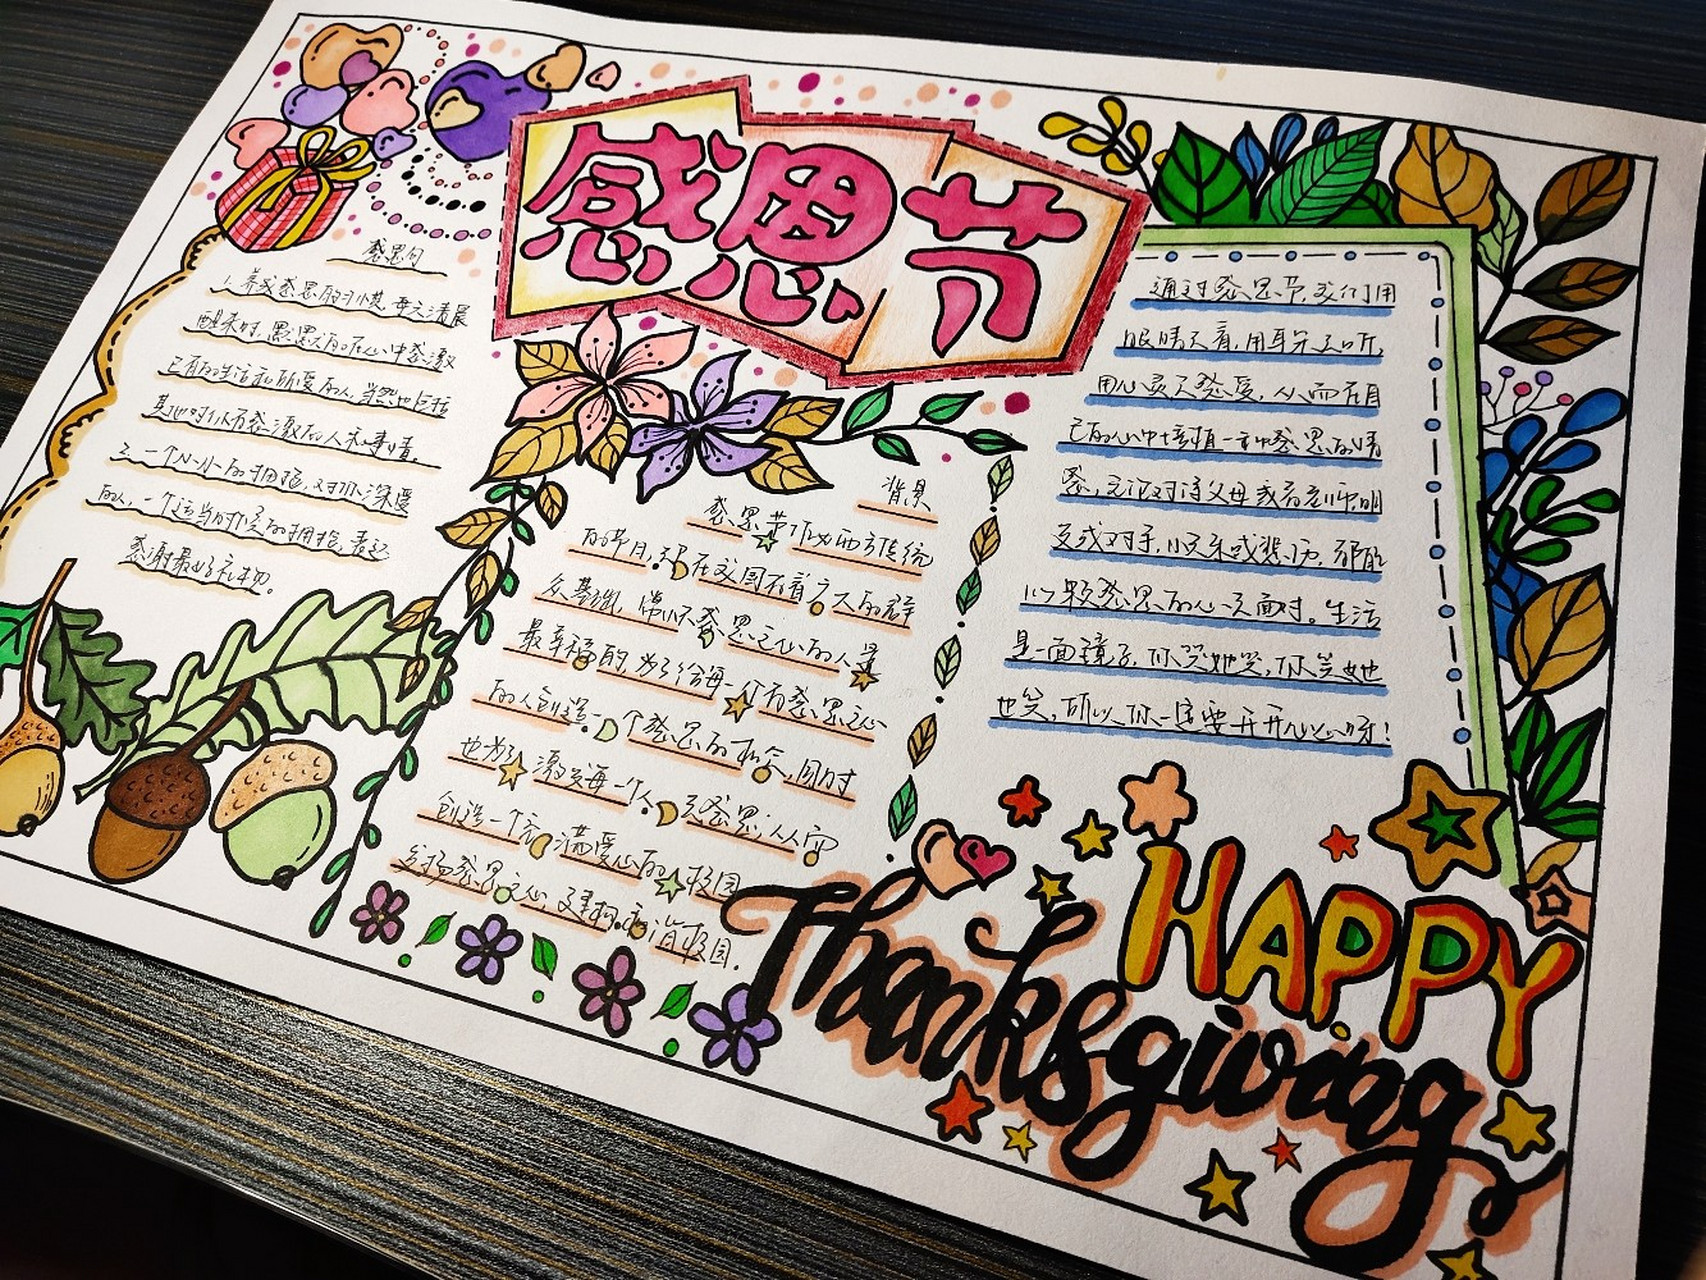 感恩节
感恩句
1. 养成感恩的习惯,每天清晨
醒来时,默默的在心中感激
已有的生活和所爱的人,当然也包括
其他时候有感激的人和事情。
2. 一个小小的拥抱,对你深爱
的人,一个适当时候的拥抱,表达
感谢最好的礼物。
背景
感恩节作为西方传统
的节日,却在我国有着广大的群
众基础,常怀感恩之心的人最
最幸福的,为了给每一个有感恩之心
的人创造一个感恩的机会,同时
也为了激发每一个人去感恩,从而
创造一个充满爱心的校园
发扬感恩之心,建构和谐校园.
通过感恩节,我们用
眼睛去看,用耳朵去听,
用心灵去感受,从而在自
己的心中培植一种感恩的情
感,无论对待父母或者老师,朋
友或对手,快乐或悲伤,都能
以颗感恩的心去面对。生活
是一面镜子,你哭她哭,你笑她
也笑,所以,你一定要开开心心呀!
HAPPY
Thanksgiving